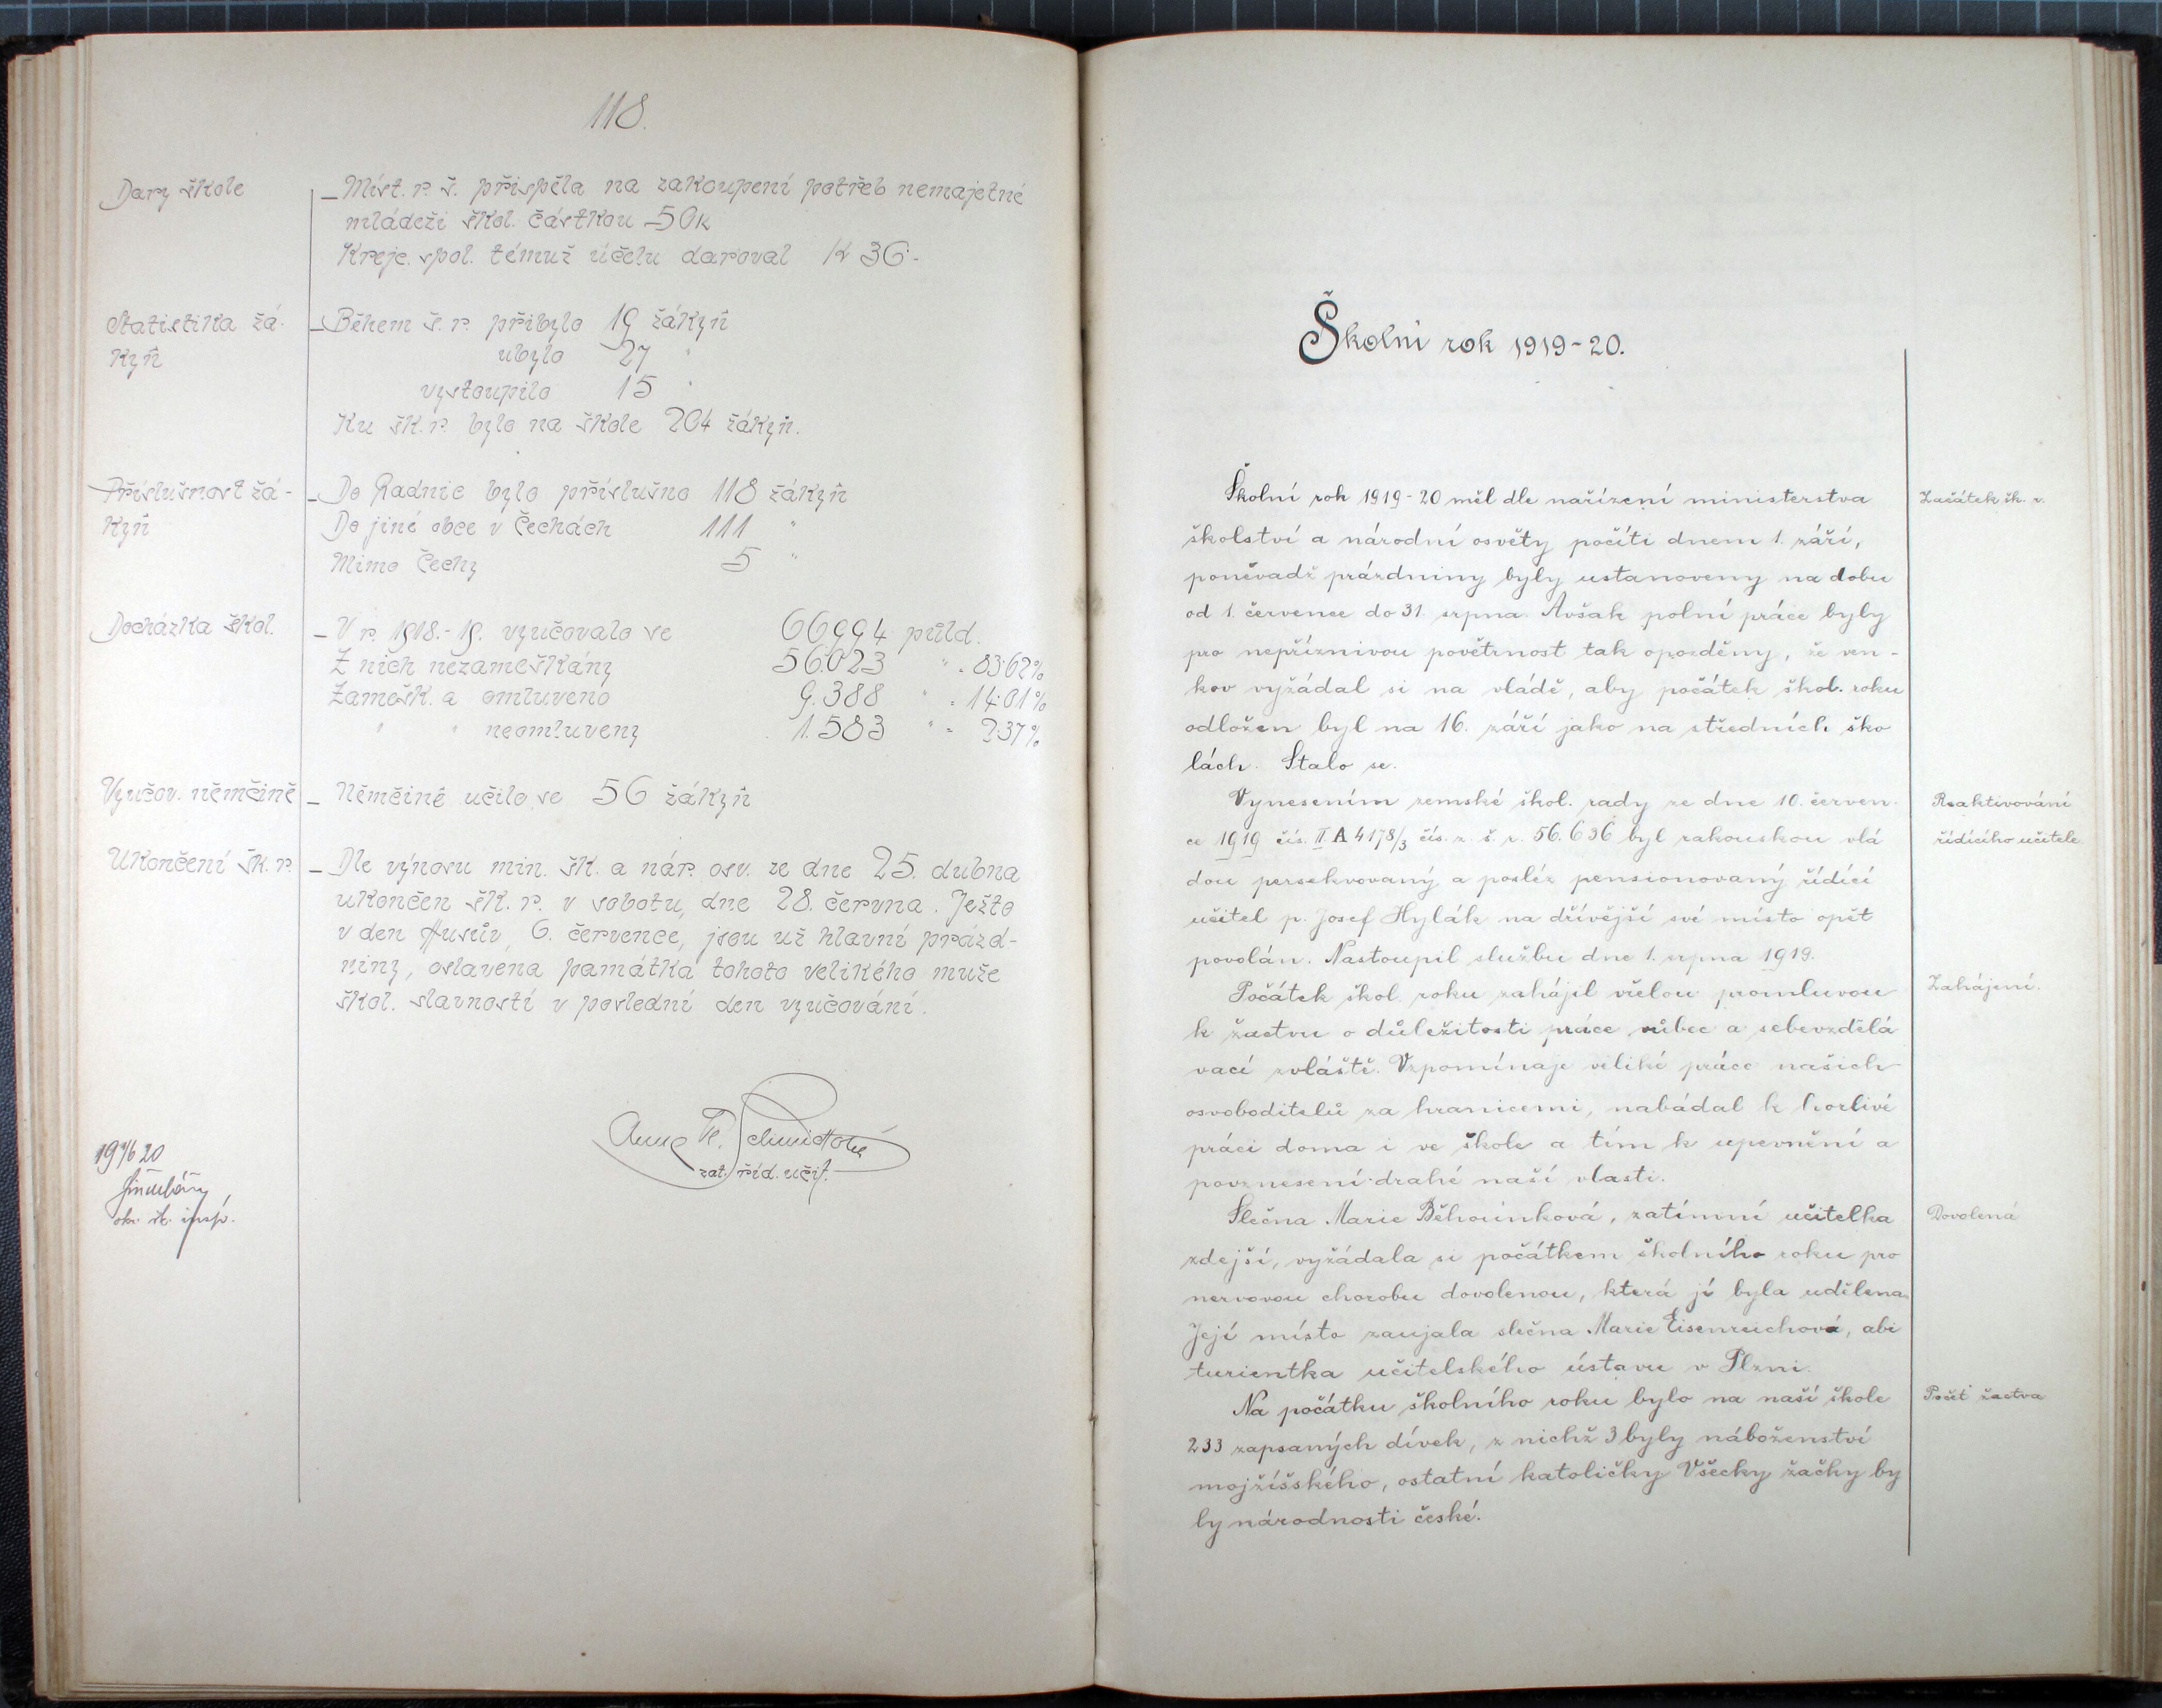 118.
Dary škole
– Míst. r. š. přispěla na zakoupení potřeb nemajetné
mládeži škol. částkou 50K
Krejc. spol. témuž účelu daroval K 36·-
Statistika žá-
kyň
– Během š. r. přibylo 19 žákyň
ubylo 27 "
vystoupilo 15 "
Ku šk. r. bylo na škole 204 žákyň.
Příslušnost žá-
kyň
– Do Radnic bylo příslušno 118 žákyň
Do jiné obce v Čechách 111 "
Mimo Čechy 5 "
Docházka škol.
– V r. 1918.-19. vyučovalo se 66994 půld.
Z nich nezameškány 56.023 " = 83·62%
Zamešk. a omluveno 9.388 " = 14·01%
" " neomluveny 1.583 " = 2·37%
Vyučov. němčině
– Němčině učilo se 56 žákyň
Ukončení šk. r.
– Dle výnosu min. šk. a nár. osv. ze dne 25. dubna
ukončen šk. r. v sobotu, dne 28. června. Ježto
v den Husův, 6. července, jsou už hlavní prázd-
niny, oslavena památka tohoto velikého muže
škol. slavností v poslední den vyučování.
Schmidtová
zat. říd. učit.
okr. šk. insp.
Školní rok 1919-20.
Školní rok 1919-20 měl dle nařízení ministerstva
Začátek šk. r.
školství a národní osvěty počíti dnem 1. září,
poněvadž prázdniny byly ustanoveny na dobu
od 1. července do 31. srpna. Avšak polní práce byly
pro nepříznivou povětrnost tak opozděny, že ven-
kov vyžádal si na vládě, aby počátek škol. roku
odložen byl na 16. září jako na středních ško
lách. Stalo se.
Vynesením zemské škol. rady ze dne 10. červen-
Reaktivování
ce 1919 čís. II A 4178/3 čís. z. š. r. 56.636 byl rakouskou vlá
řídícího učitele
dou persekvovaný a posléz pensionovaný řídící
učitel p. Josef Hylák na dřívější své místo opět
povolán. Nastoupil službu dne 1. srpna 1919.
Počátek škol. roku zahájil vřelou promluvou
Zahájení.
k žactvu o důležitosti práce vůbec a sebevzdělá
vací zvláště. Vzpomínaje veliké práce našich
osvoboditelů za hranicemi, nabádal k horlivé
práci doma i ve škole a tím k upevnění a
povznesení drahé naší vlasti.
Slečna Marie Běhounková, zatímní učitelka
Dovolená
zdejší, vyžádala si počátkem školního roku pro
nervovou chorobu dovolenou, která jí byla udělena.
Její místo zaujala slečna Marie Eisenreichová, abi
turientka učitelského ústavu v Plzni.
Na počátku školního roku bylo na naší škole
Počet žactva
233 zapsaných dívek, z nichž 3 byly náboženství
mojžíšského, ostatní katoličky. Všecky žačky by
ly národnosti české.